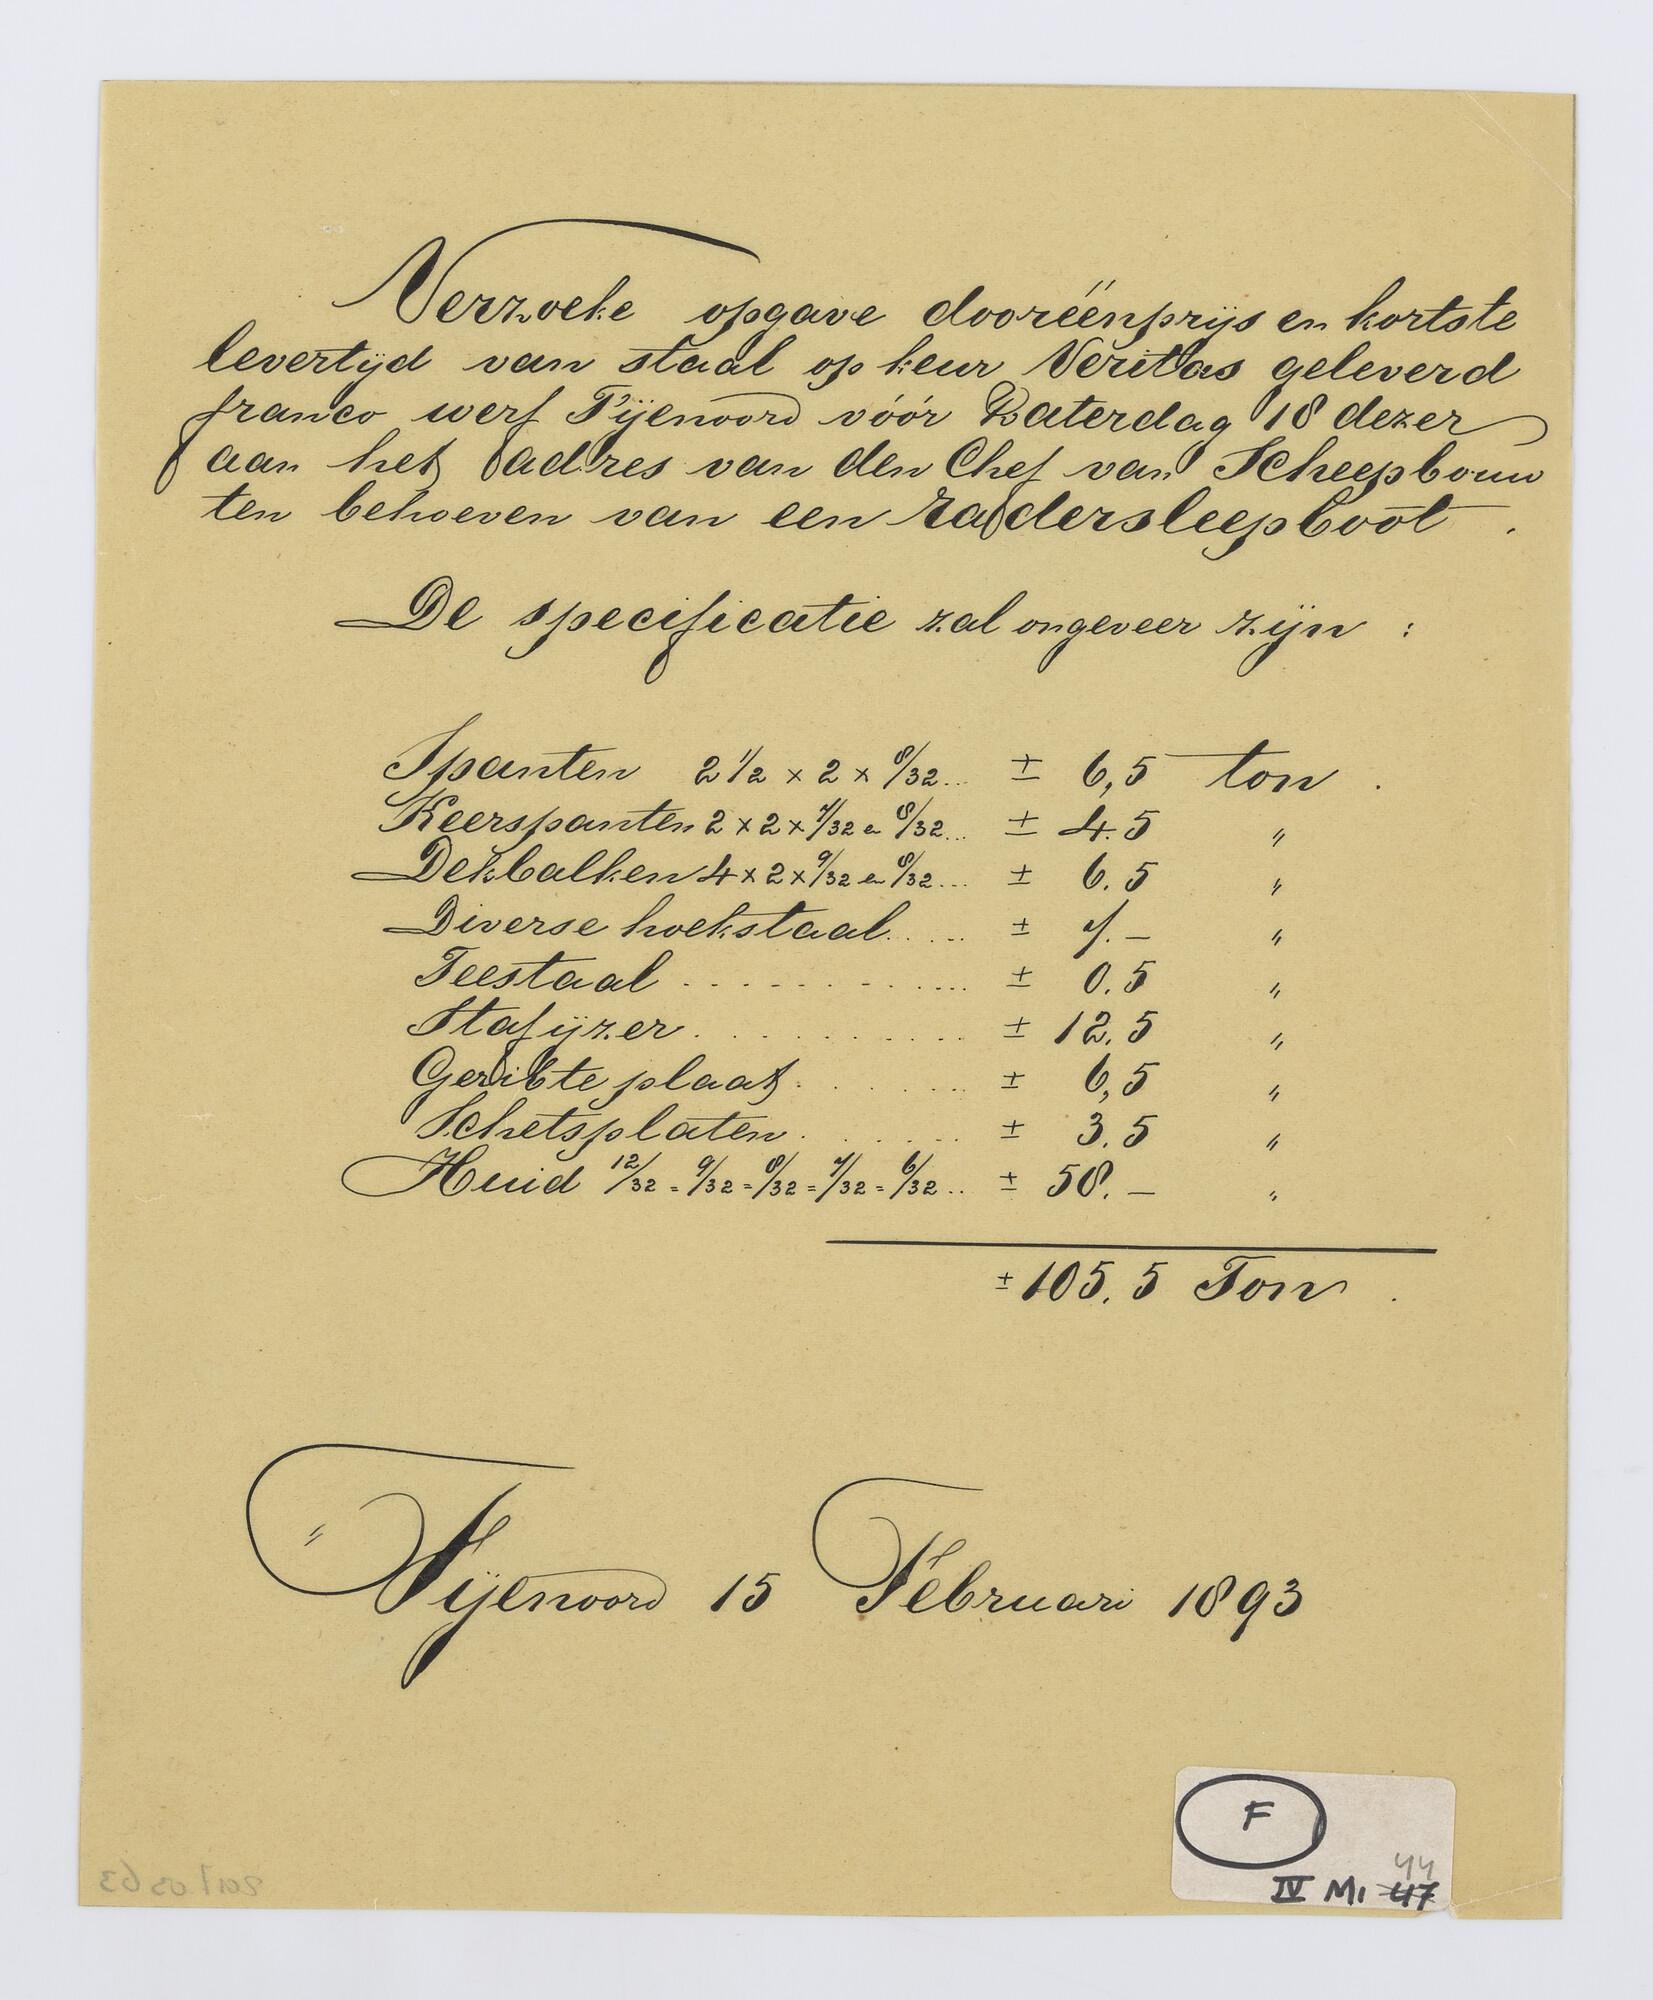 Verzoeke opgave dooréénprijs en kortste
levertijd van staal op keur Veritas geleverd
franco werf Fijenoord vóór Zaterdag 18 dezer
aan het adres van den Chef van Scheepbouw
ten behoeven van een radersleepboot.
De specificatie zal ongeveer zijn :
Spanten 2 1/2 × 2 × 8/32 .. ± 6,5 ton .
Keerspanten 2 × 2 × 7/32 en 8/32 ... ± 4.5 "
Dekbalken 4 × 2 × 9/32 en 8/32 ... ± 6.5 "
Diverse hoekstaal ..... ± 7.— "
Teestaal ............ ± 0.5 "
Stafijzer ........... ± 12.5 "
Geribte plaat ........ ± 6,5 "
Schetsplaten ........ ± 3.5 "
Huid 12/32 = 9/32 = 8/32 = 7/32 = 6/32 .. ± 58.— "
± 105.5 Ton .
Fijenoord 15 Februari 1893
F
44
IV M1 47